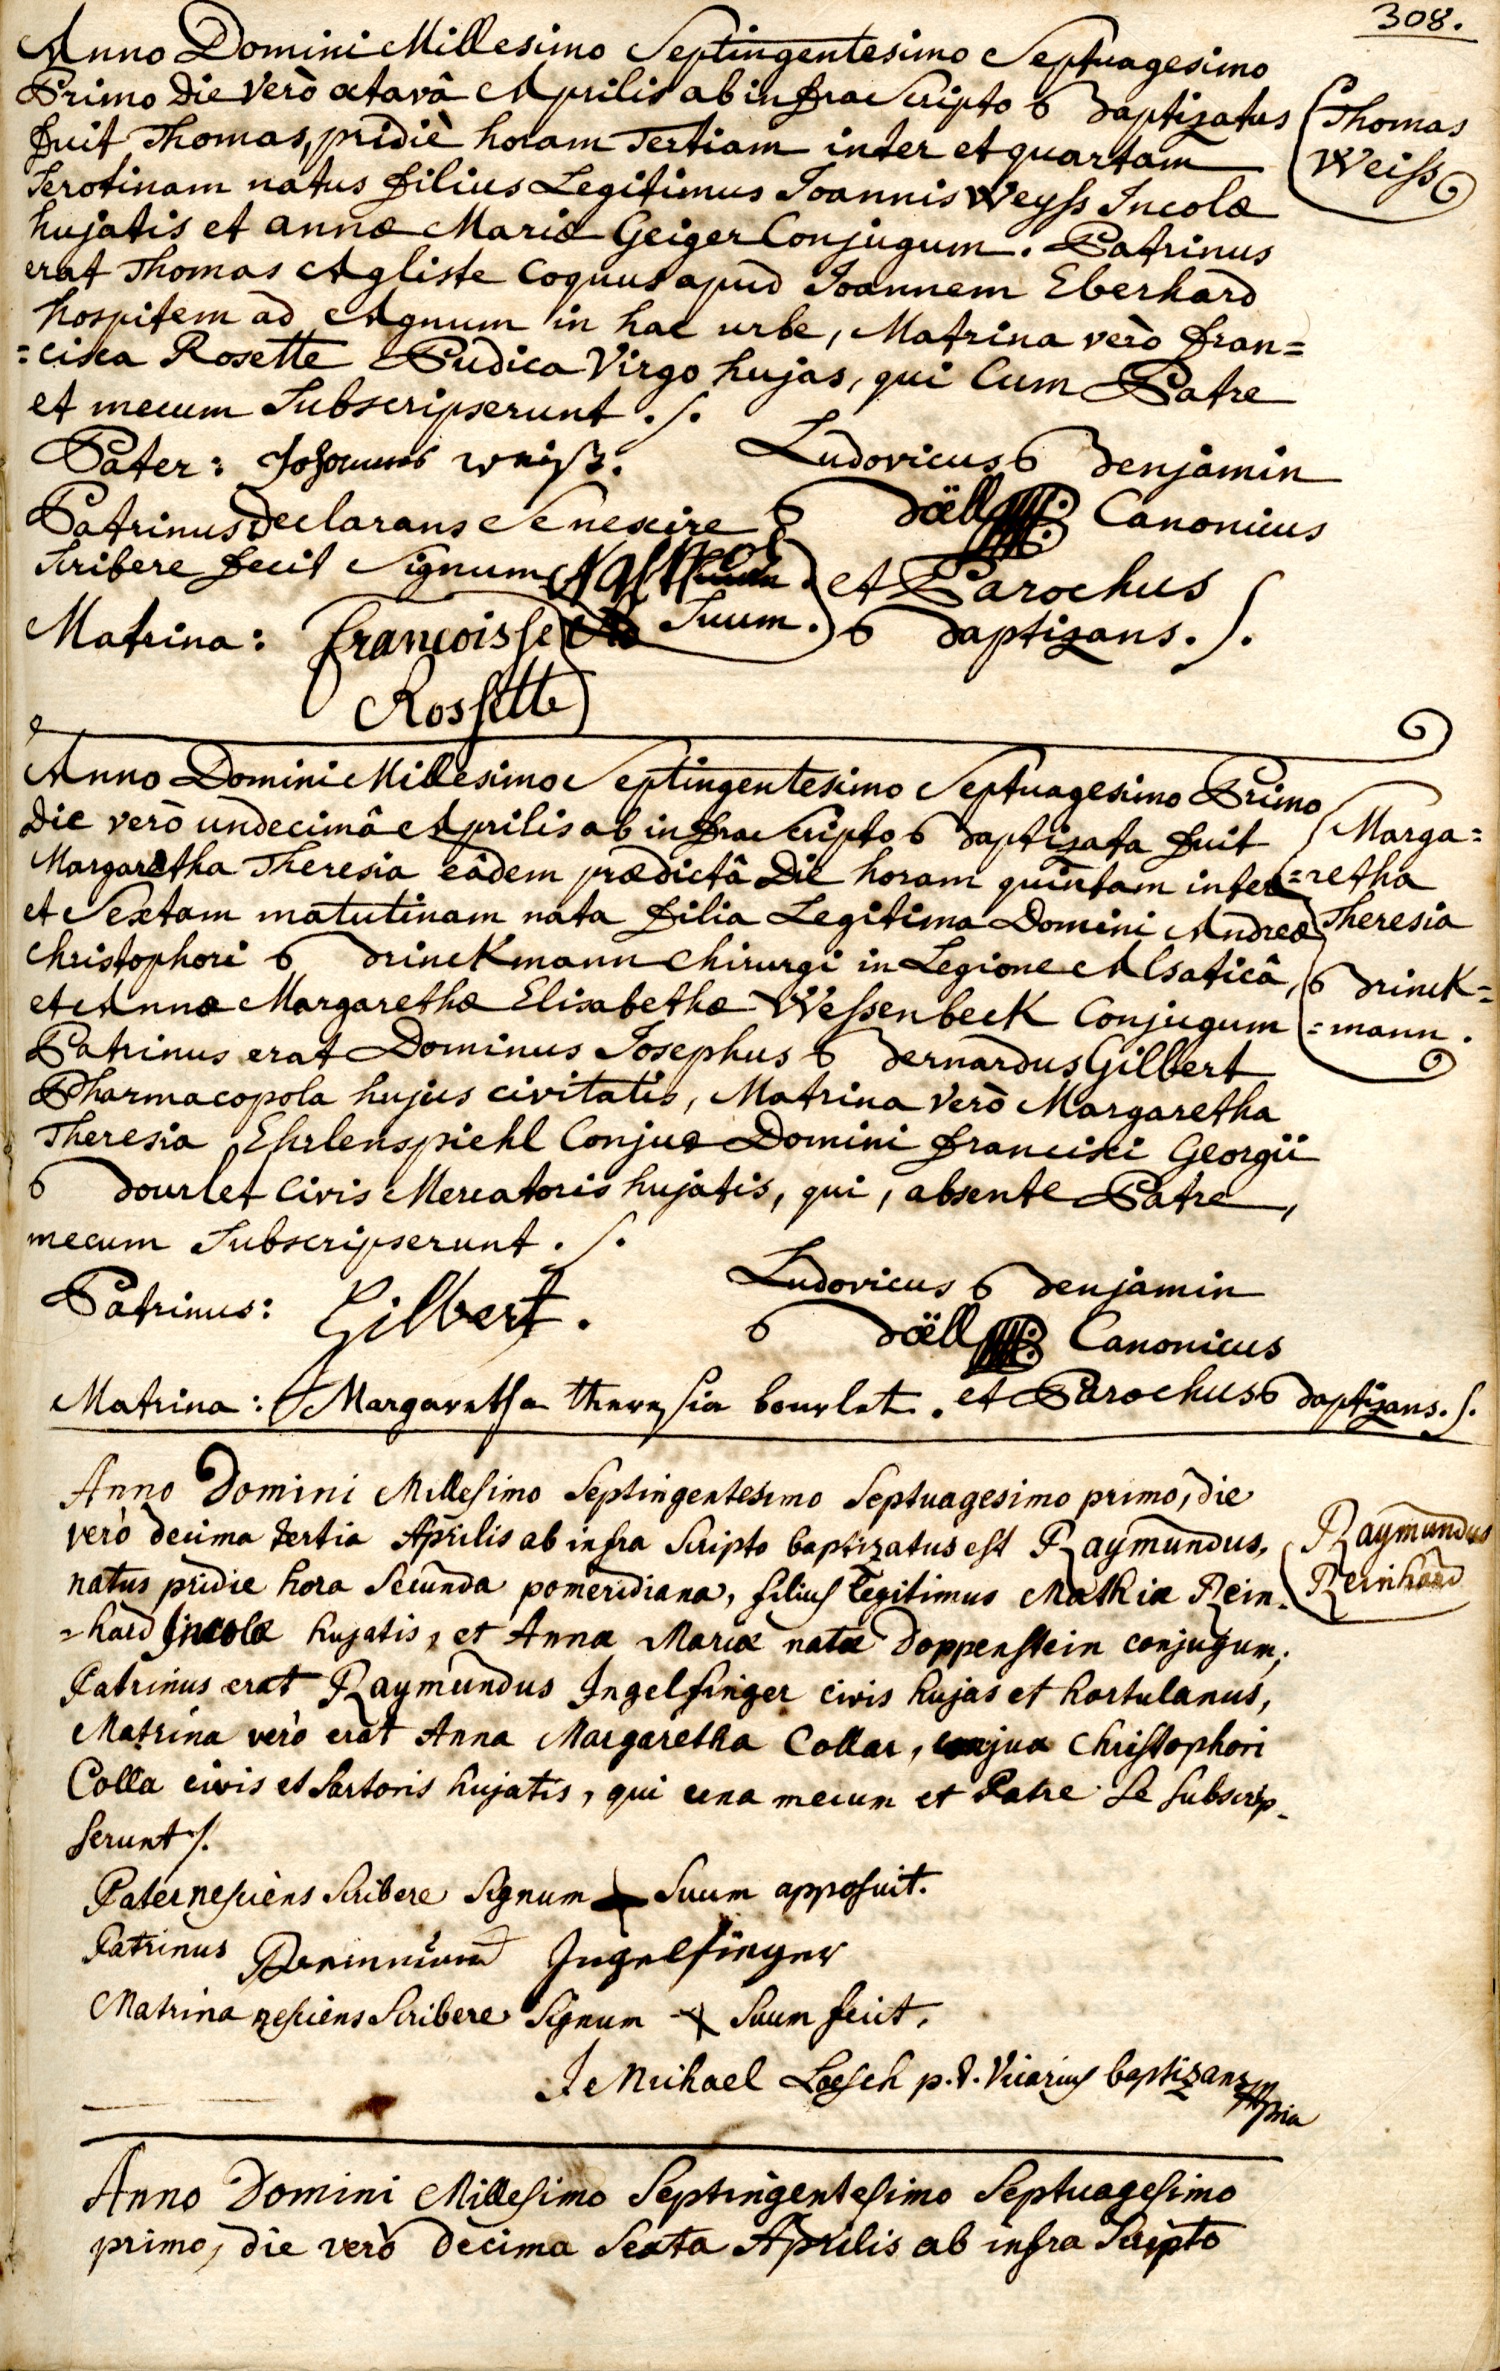 308.
Anno Domini Millesimo Septingentesimo Septuagesimo
Primo Die verò octavâ Aprilis ab infra Scripto Baptizatus
fuit Thomas, pridiè horam Tertiam inter et quartam
Serotinam natus filius Legitimus Joannis Weyss Incolæ
hujatis et annæ Mariæ Geiger Conjugum. Patrinus
erat Thomas Agliste Coquus apud Joannem Eberhard
hospitem ad Agnum in hac urbe, Matrina verò fran=
=cisca Rosette Pudica Virgo hujas, qui Cum Patre
et mecum Subscripserunt ./.
Thomas
Weiss
Pater: Johannes weiß.
Ludovicus Benjamin
Böll Canonicus
et Parochus
Baptizans ./.
Patrinus Declarans Se nescire
Scribere fecit Signum
Suum.
Matrina: francoisse
Rossette
Anno Domini Millesimo Septingentesimo Septuagesimo Primo
Die verò undecimâ Aprilis ab infra Scripto Baptizata fuit
Margaretha Theresia eâdem prædictâ Die horam quintam inter
et Sextam matutinam nata filia Legitima Domini Andreæ
Christophori Brinckmann Chirurgi in Legione Alsaticâ,
et Annæ Margarethæ Elisabethæ Wessenbeck Conjugum
Patrinus erat Dominus Josephus Bernardus Gilbert
Pharmacopola hujus civitatis, Matrina Verò Margaretha
Theresia Ehrlenspiehl Conjux Domini francisci Georgii
Bourlet Civis Mercatoris hujatis, qui, absente Patre,
mecum Subscripserunt ./.
Marga=
=retha
Theresia
Brinck=
=mann.
Patrinus: Gilbert.
Ludovicus Benjamin
Böll Canonicus
Matrina: Margaretha theresia bourlet. et Parochus Baptizans ./.
Anno Domini Millesimo Septingentesimo Septuagesimo primo, die
verò decima tertia Aprilis ab infra Scripto baptizatus est Raymundus,
natus pridie hora Secunda pomeridiana, filius legitimus Mathiæ Rein=
=hard Incolæ hujatis, et Annæ Mariæ natæ Doppenstein conjugum;
Patrinus erat Raymundus Ingelfinger civis hujas et hortulanus,
Matrina verò erat Anna Margaretha Collar, conjux Christophori
Colla civis et Sartoris hujatis, qui una mecum et Patre Se Subscrip=
serunt ./.
Raymundus
Reinhard
Pater nesciens Scribere Signum Suum apposuit.
Patrinus Ingelfinger
Matrina nesciens Scribere Signum Suum fecit.
J Michael Loesch p.t. Vicarius baptizans mpria
Anno Domini Millesimo Septingentesimo Septuagesimo
primo, die verò Decima Sexta Aprilis ab infra Scripto